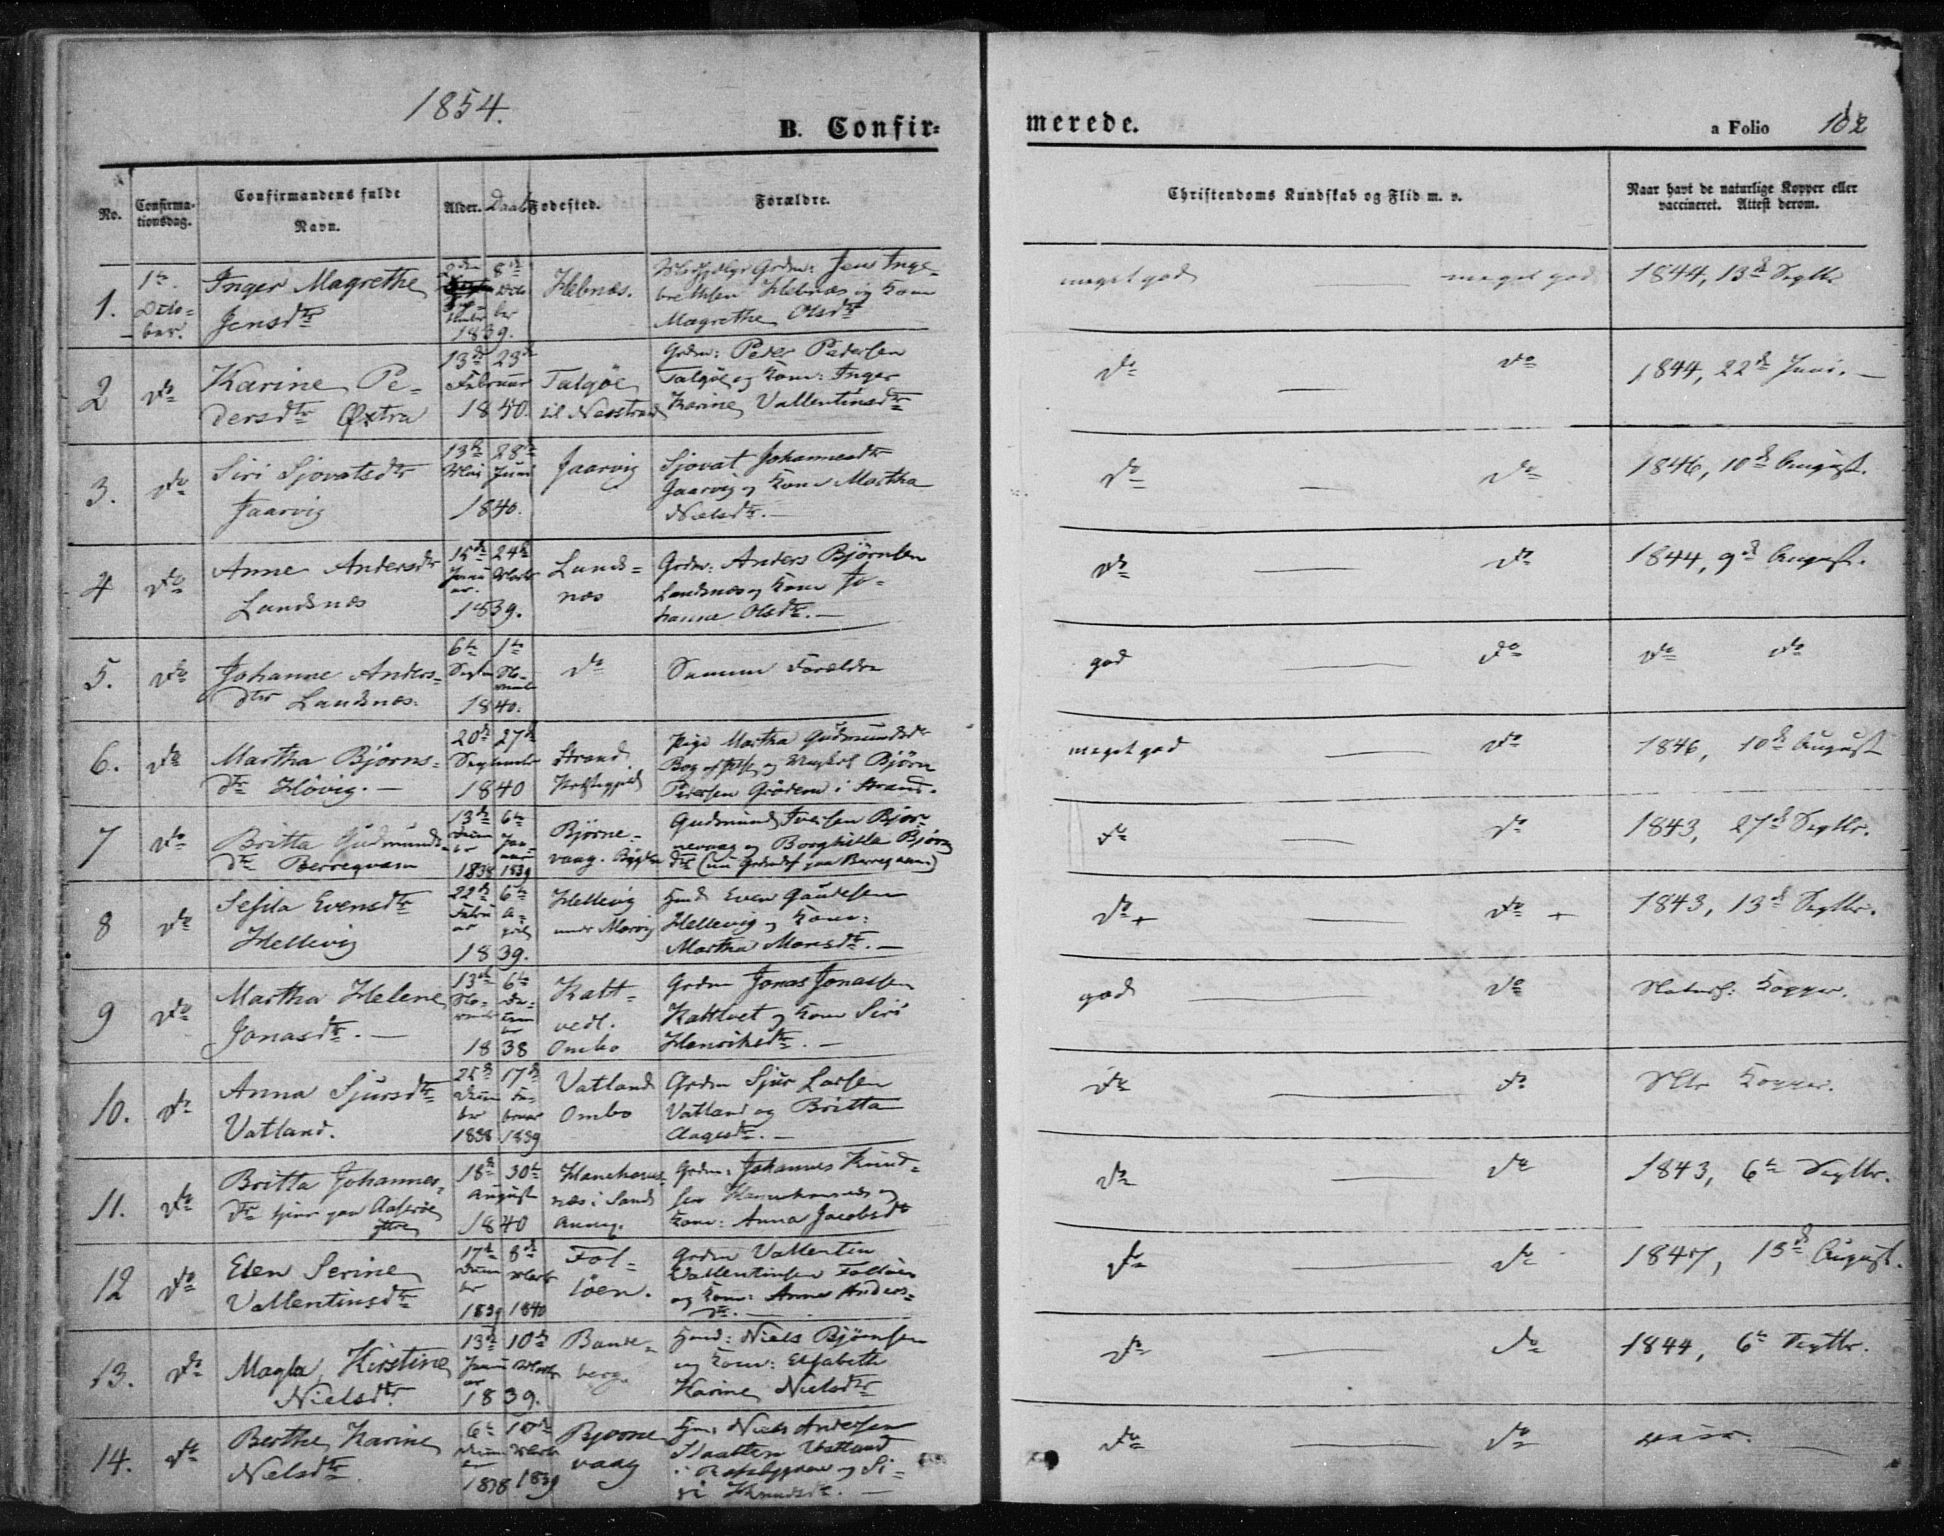 1854.
B. Confir-
merede.
a Folio 102
No.
Confirma-
tionsdag.
Confirmandens fulde
Navn.
Alder.
Daab
Fødested.
Forældre.
Christendoms Kundskab og Flid m. v.
Naar havt de naturlige Kopper eller
vaccineret. Attest derom.
1. 1te Octo-
ber.
Inger Magrethe
Jensdtr
8de Octo
ber
1839.
Hebnæs.
Grdm: Jens Inge-
brethsen Hebnæs og Kone
Magrethe Olsdtr
meget god meget god 1844, 13de Septbr
2 Do
Karine Pe-
dersdtr Østrø
13de 23de
Februar
1840.
Talgøe
til Nerstrand
Grdm: Peder Pedersen
Talgøe og Kone: Inger
Karine Vallentinsdtr
Do — Do 1844, 22de Juni. —
3. Do
Siri Sjovatsdtr
Jaarvig
13de 28de
Mai Juni
1840.
Jaarvig
Sjovat Johannesdtr
Jaarvig og Kone Martha
Nielsdtr. —
Do — Do 1846, 10de August.
4 Do
Anne Andersdtr
Landsnæs
15de 24de
Janu Marts
ar.
1839.
Lands-
næs
Grdm: Anders Bjørnsen
Landsnæs og Kone Jo-
hanne Olsdtr. —
Do — Do 1844, 9de August.
5. Do
Johanne Anders-
dtr Landsnæs.
6te 1te
Septbr No-
vembr
1840.
Do
Samme Forældre
god — Do Do Do
6. Do
Martha Bjørns-
dtr Høvig. —
20de 27de
September
1840
Strand
Præstegjeld
Pige Martha Gudmundsdtr
og Ungkarl Bjørn
Pedersen Grødem i Strand.
meget god — Do 1846, 10de August
7 Do
Britta Gudmunds-
dtr Berreqvam
13de 6te
Decem Jan
br uar
1838 1839
Bjørne-
vaag.
Gudmund Iversen Bjør-
nevaag og Borghilla Bjørns
dtr
Do — Do 1843, 27de Septbr.
8 Do
Sesila Evensdtr
Hellevig
22de 6te
Febru A-
ar pril
1839.
Hellevig
under
Hmd Even Gautesen
Hellevig og Kone:
Martha Monsdtr. —
Do + — Do + 1843, 13de Septbr.
9 Do
Martha Helene
Jonasdtr. —
13de 6te
No- De-
vembr cem
br
1838
Katt-
vedt.
Ombo
Grdm Jonas Jonassen
Kattvet og Kone Siri
Henriksdtr. —
god — Do Naturl: Kopper.
10. Do
Anna Sjursdtr
Vatland.
25de 17de
Decem Fe-
ber bruar
1838 1839
Vatland
Ombo
Grdm Sjur Larsen
Vatland og Britta
Aagesdtr. —
Do — Do Ntr Kopper.
11. Do
Britta Johannes-
dtr
18de 30te
August
1840
næs i Sands
Annex.
Grdm: Johannes Knud-
sen og
Kone: Anna Jacobsdtr
Do — Do 1843, 6te Septbr.
12 Do
Elen Serine
Vallentinsdtr
17de 8de
Decem Marts
br
1839 1840
Fol-
løen.
Grdm Vallentin
Vallentinsen Folløen
og Kone: Anne Anders-
dtr. —
Do — Do 1847, 13de August.
13. Do
Magla Kirstine
Nielsdtr.
13de 10de
Janu Marts
ar
1839.
Bande-
berg
Hmd: Niels Bjørnsen
og Kone: Elsabeth
Karine Nielsdtr
Do — Do 1844, 6te Septbr.
14. Do
Berthe Karine
Nielsdtr.
6te 10de
Decem Marts
br
1838 1839
Bjørne
vaag
Hm: Niels Andersen
Vatland
og Si-
ri Knudsdtr. —
Do — Do vacc. —